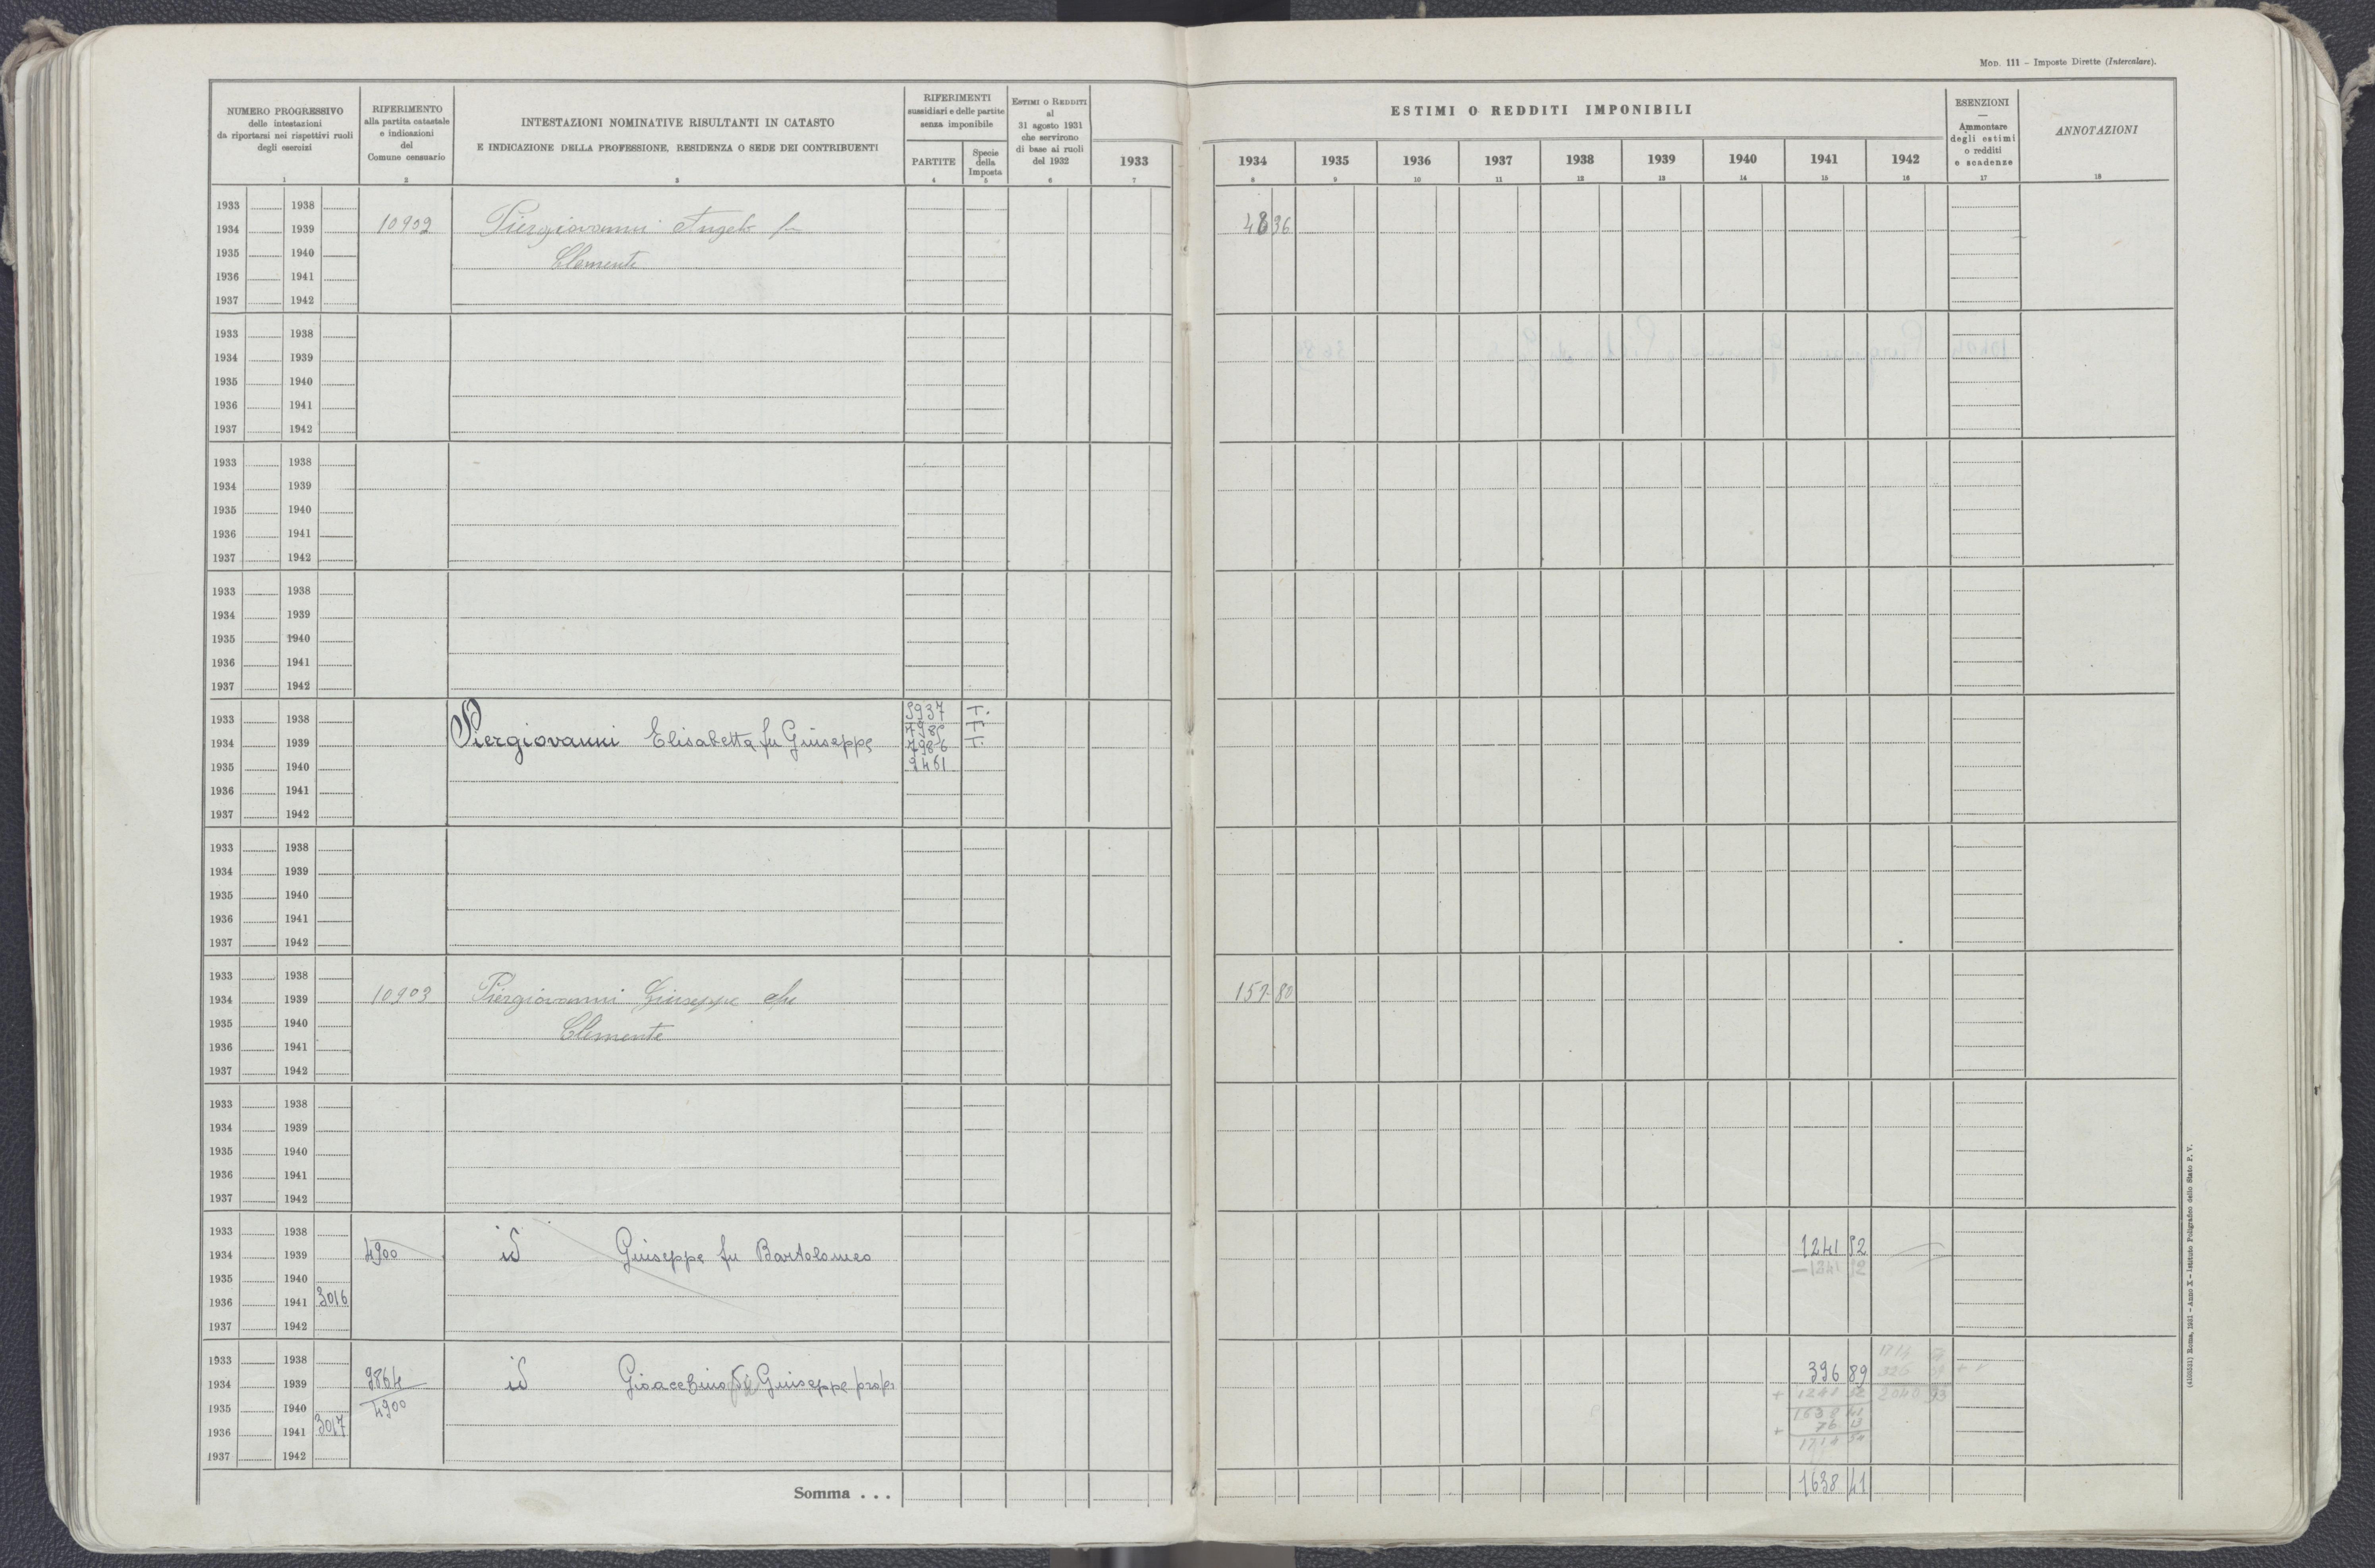 Mod. 111 - Imposte Dirette (Intercalare).
NUMERO PROGRESSIVO
delle intestazioni
da riportarsi nei rispettivi ruoli
degli esercizi
1
RIFERIMENTO
alla partita catastale
e indicazioni
del
Comune censuario
2
INTESTAZIONI NOMINATIVE RISULTANTI IN CATASTO
E INDICAZIONE DELLA PROFESSIONE, RESIDENZA O SEDE DEI CONTRIBUENTI
3
RIFERIMENTI
sussidiari e delle partite
senza imponibile
PARTITE
4
Specie
della
Imposta
5
Estimi o Redditi
al
31 agosto 1931
che servirono
di base ai ruoli
del 1932
6
ESTIMI O REDDITI IMPONIBILI
1933 1934 1935 1936 1937 1938 1939 1940 1941 1942
7 8 9 10 11 12 13 14 15 16
ESENZIONI
—
Ammontare
degli estimi
o redditi
e scadenze
17
ANNOTAZIONI
18
1933 1938
1934 1939 10902 Piergiovanni Angelo fu 36
1935 1940 Clemente
1936 1941
1937 1942
1933 1938
1934 1939
1935 1940
1936 1941
1937 1942
1933 1938
1934 1939
1935 1940
1936 1941
1937 1942
1933 1938
1934 1939
1935 1940
1936 1941
1937 1942
1933 1938 5937 T.
7985 T
1934 1939 Piergiovanni Elisabetta fu Giuseppe 7986 T.
1935 1940 9461
1936 1941
1937 1942
1933 1938
1934 1939
1935 1940
1936 1941
1937 1942
1933 1938
1934 1939 10903 Piergiovanni Giuseppe fu 157 80
1935 1940 Clemente
1936 1941
1937 1942
1933 1938
1934 1939
1935 1940
1936 1941
1937 1942
1933 1938
1934 1939 4900 id Giuseppe fu Bartolomeo 1241 52
1935 1940 - 1241 52
1936 1941 3016
1937 1942
1933 1938
1934 1939 9864 id Gioacchino di Giuseppe propr 396 89 326 39
1935 1940 4900 + 1241 52 2040 93
1638 41
1936 1941 3017 + 76 13
1714 54
1937 1942
Somma . . . 1638 41
(4103531) Roma, 1931 - Anno X - Istituto Poligrafico dello Stato P. V.